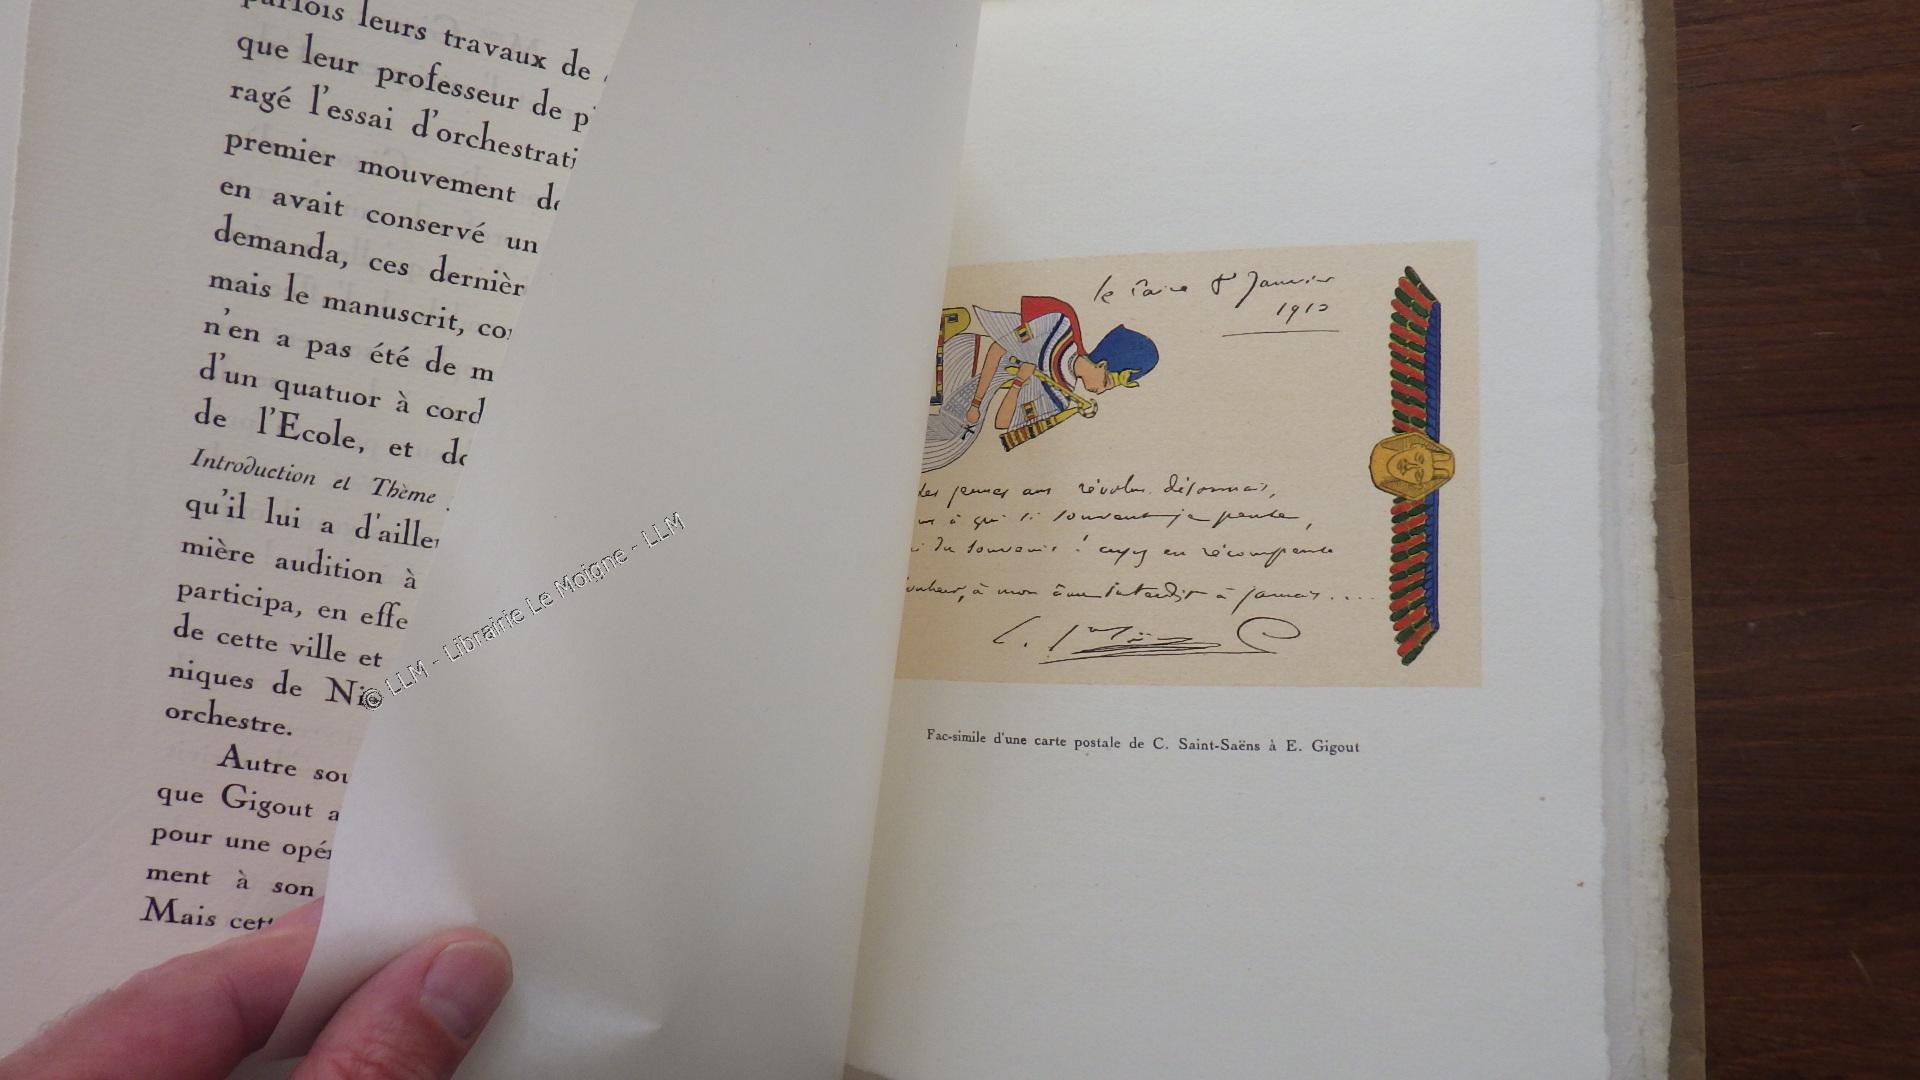 parfois leurs travaux de
que leur professeur de p
ragé l'essai d'orchestrati
premier mouvement de
en avait conservé un
demanda, ces dernièr
mais le manuscrit, co
n'en a pas été de m
d'un quatuor à cord
de l'Ecole, et de
Introduction et Thème
qu'il lui a d'aille
mière audition à
participa, en effe
de cette ville et
niques de Ni
orchestre.
Autre sou
que Gigout a
pour une opé
ment à son
Mais cett
© LLM - Librairie Le Moigne - LLM
le Caire 8 Janvier
1910
des jeunes ans révolus désormais,
à qui si souvent je pense,
du souvenir ! ayez en récompense
bonheur, à mon âme interdit à jamais....
C. Saint-Saëns
Fac-simile d'une carte postale de C. Saint-Saëns à E. Gigout